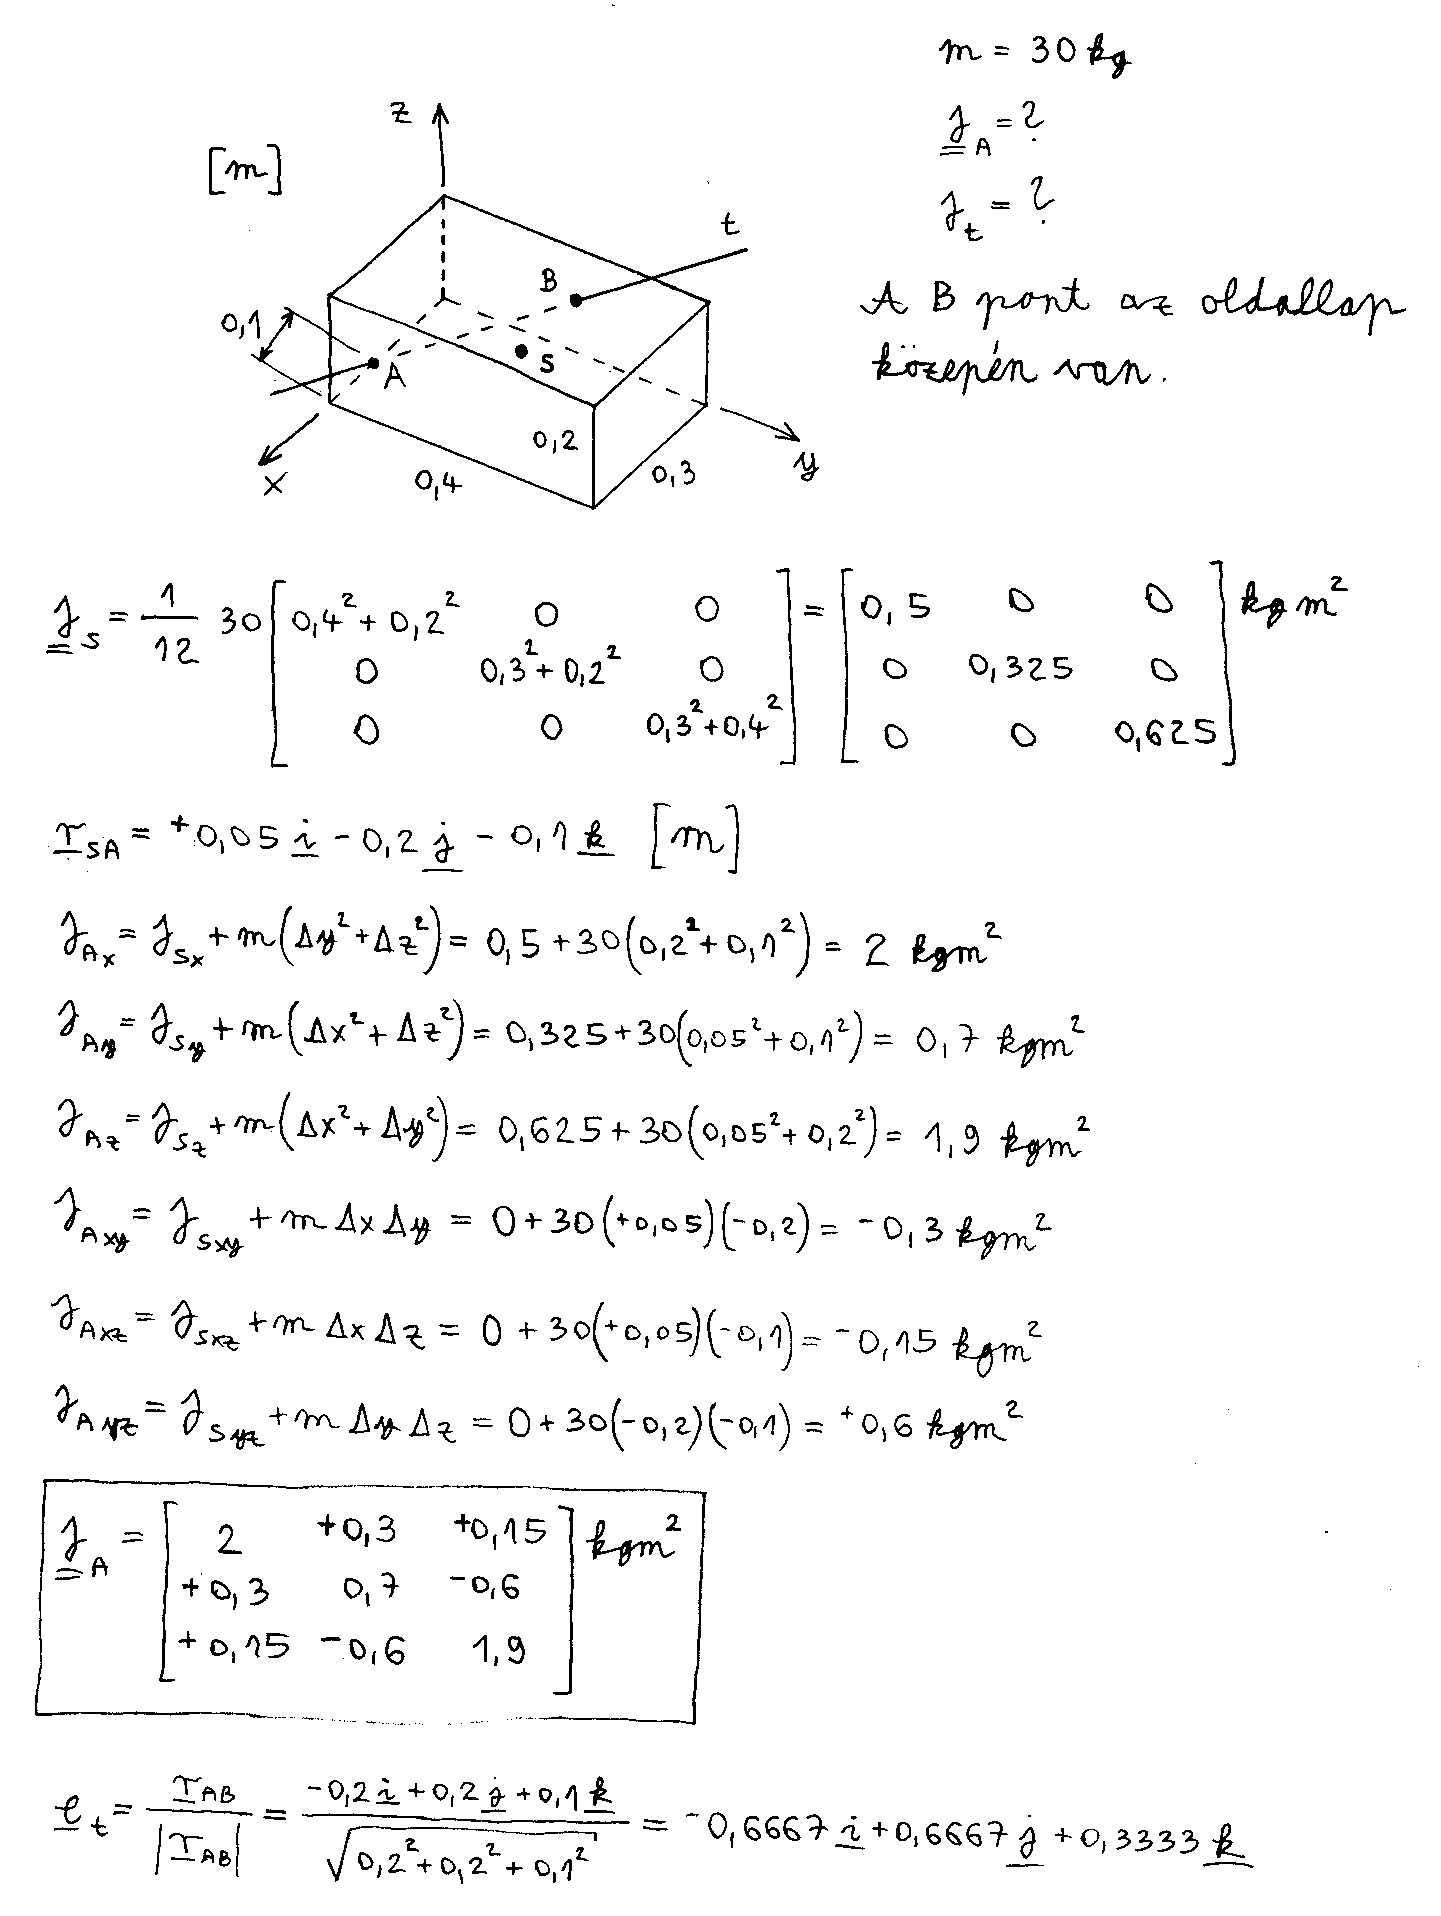 m = 30 kg
J_A = ?
J_t = ?
A B pont az oldallap
közepén van.
[m]
z
t
B
0,1
S
A
0,2
x
0,4
0,3
y
J_S = 1/12 30 [0,4²+0,2² 0 0; 0 0,3²+0,2² 0; 0 0 0,3²+0,4²] = [0,5 0 0; 0 0,325 0; 0 0 0,625] kgm²
r_SA = +0,05 i - 0,2 j - 0,1 k [m]
J_Ax = J_Sx + m(Δy²+Δz²) = 0,5+30(0,2²+0,1²) = 2 kgm²
J_Ay = J_Sy + m(Δx²+Δz²) = 0,325+30(0,05²+0,1²) = 0,7 kgm²
J_Az = J_Sz + m(Δx²+Δy²) = 0,625+30(0,05²+0,2²) = 1,9 kgm²
J_Axy = J_Sxy + m Δx Δy = 0+30(+0,05)(-0,2) = -0,3 kgm²
J_Axz = J_Sxz + m Δx Δz = 0+30(+0,05)(-0,1) = -0,15 kgm²
J_Ayz = J_Syz + m Δy Δz = 0+30(-0,2)(-0,1) = +0,6 kgm²
J_A = [2 +0,3 +0,15; +0,3 0,7 -0,6; +0,15 -0,6 1,9] kgm²
e_t = r_AB/|r_AB| = (-0,2 i + 0,2 j + 0,1 k)/√(0,2²+0,2²+0,1²) = -0,6667 i + 0,6667 j + 0,3333 k